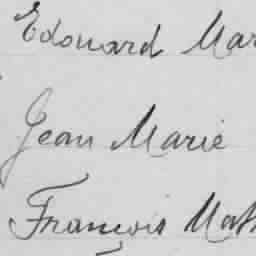 Edouard Mar
Jean Marie
François Math